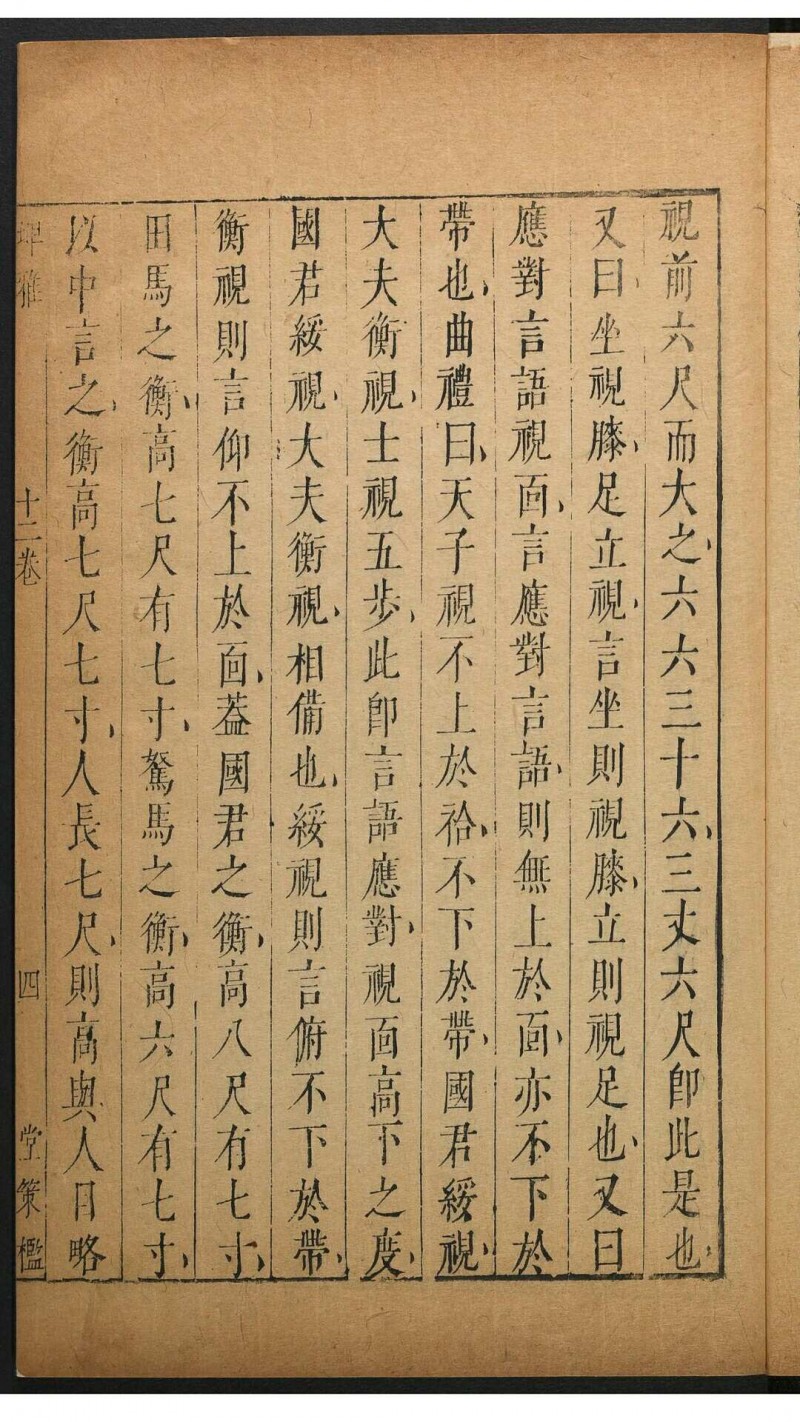 視前六尺而大之六六三十六三丈六尺卽此是也
又曰坐視膝足立視言坐則視膝立則視足也又曰
應對言語視面言應對言語則無上於面亦不下於
帶也曲禮曰天子視不上於袷不下於帶國君綏視
大夫衡視士視五步此卽言語應對視面高下之度
國君綏視大夫衡視相備也綏視則言俯不下於帶
衡視則言仰不上於面葢國君之衡高八尺有七寸
田馬之衡高七尺有七寸駑馬之衡高六尺有七寸
以中言之衡高七尺七寸人長七尺則高與人目略
埤雅 十二卷 四 堂策檻